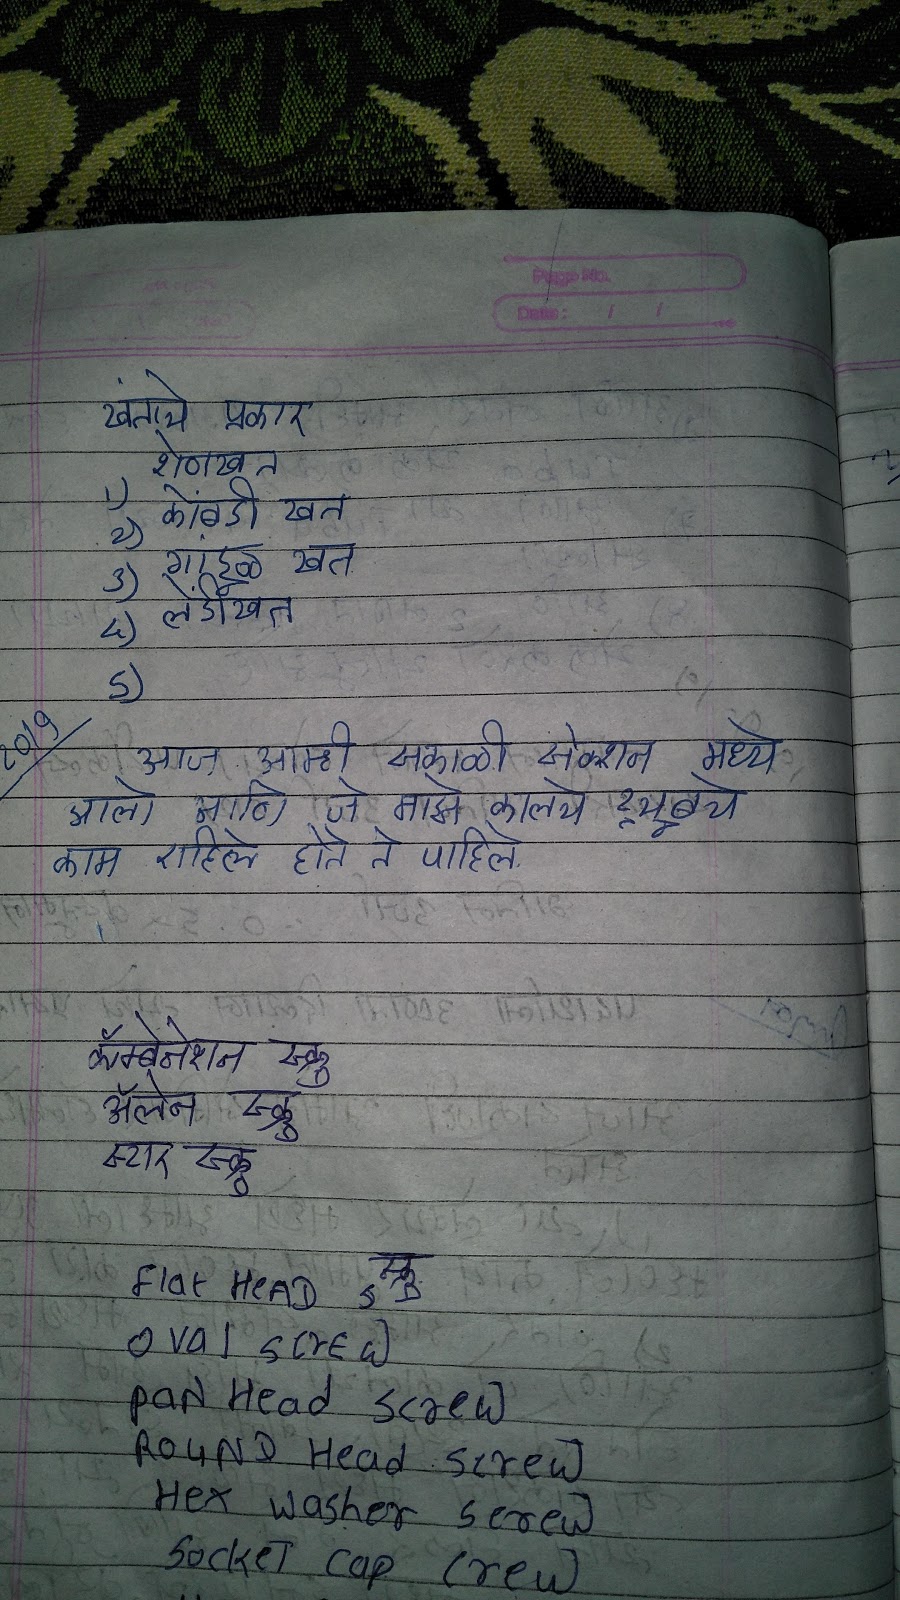 Page No.
Date: / /
खताचे प्रकार
1) शेणखत
2) कोंबडी खत
3) गांडूळ खत
4) लेंडीखत
5)
2019
आज आम्ही सकाळी सेक्शन मध्ये
आलो आणि जे माझे कालचे ट्यूबचे
काम राहिले होते ते पाहिले.
कॉम्बेनेशन स्क्रु
ॲलेन स्क्रु
स्टार स्क्रु
Flat HeAD स्क्रु
oval screw
paN Head screw
ROUND Head screw
Hex washer screw
Socket cap crew